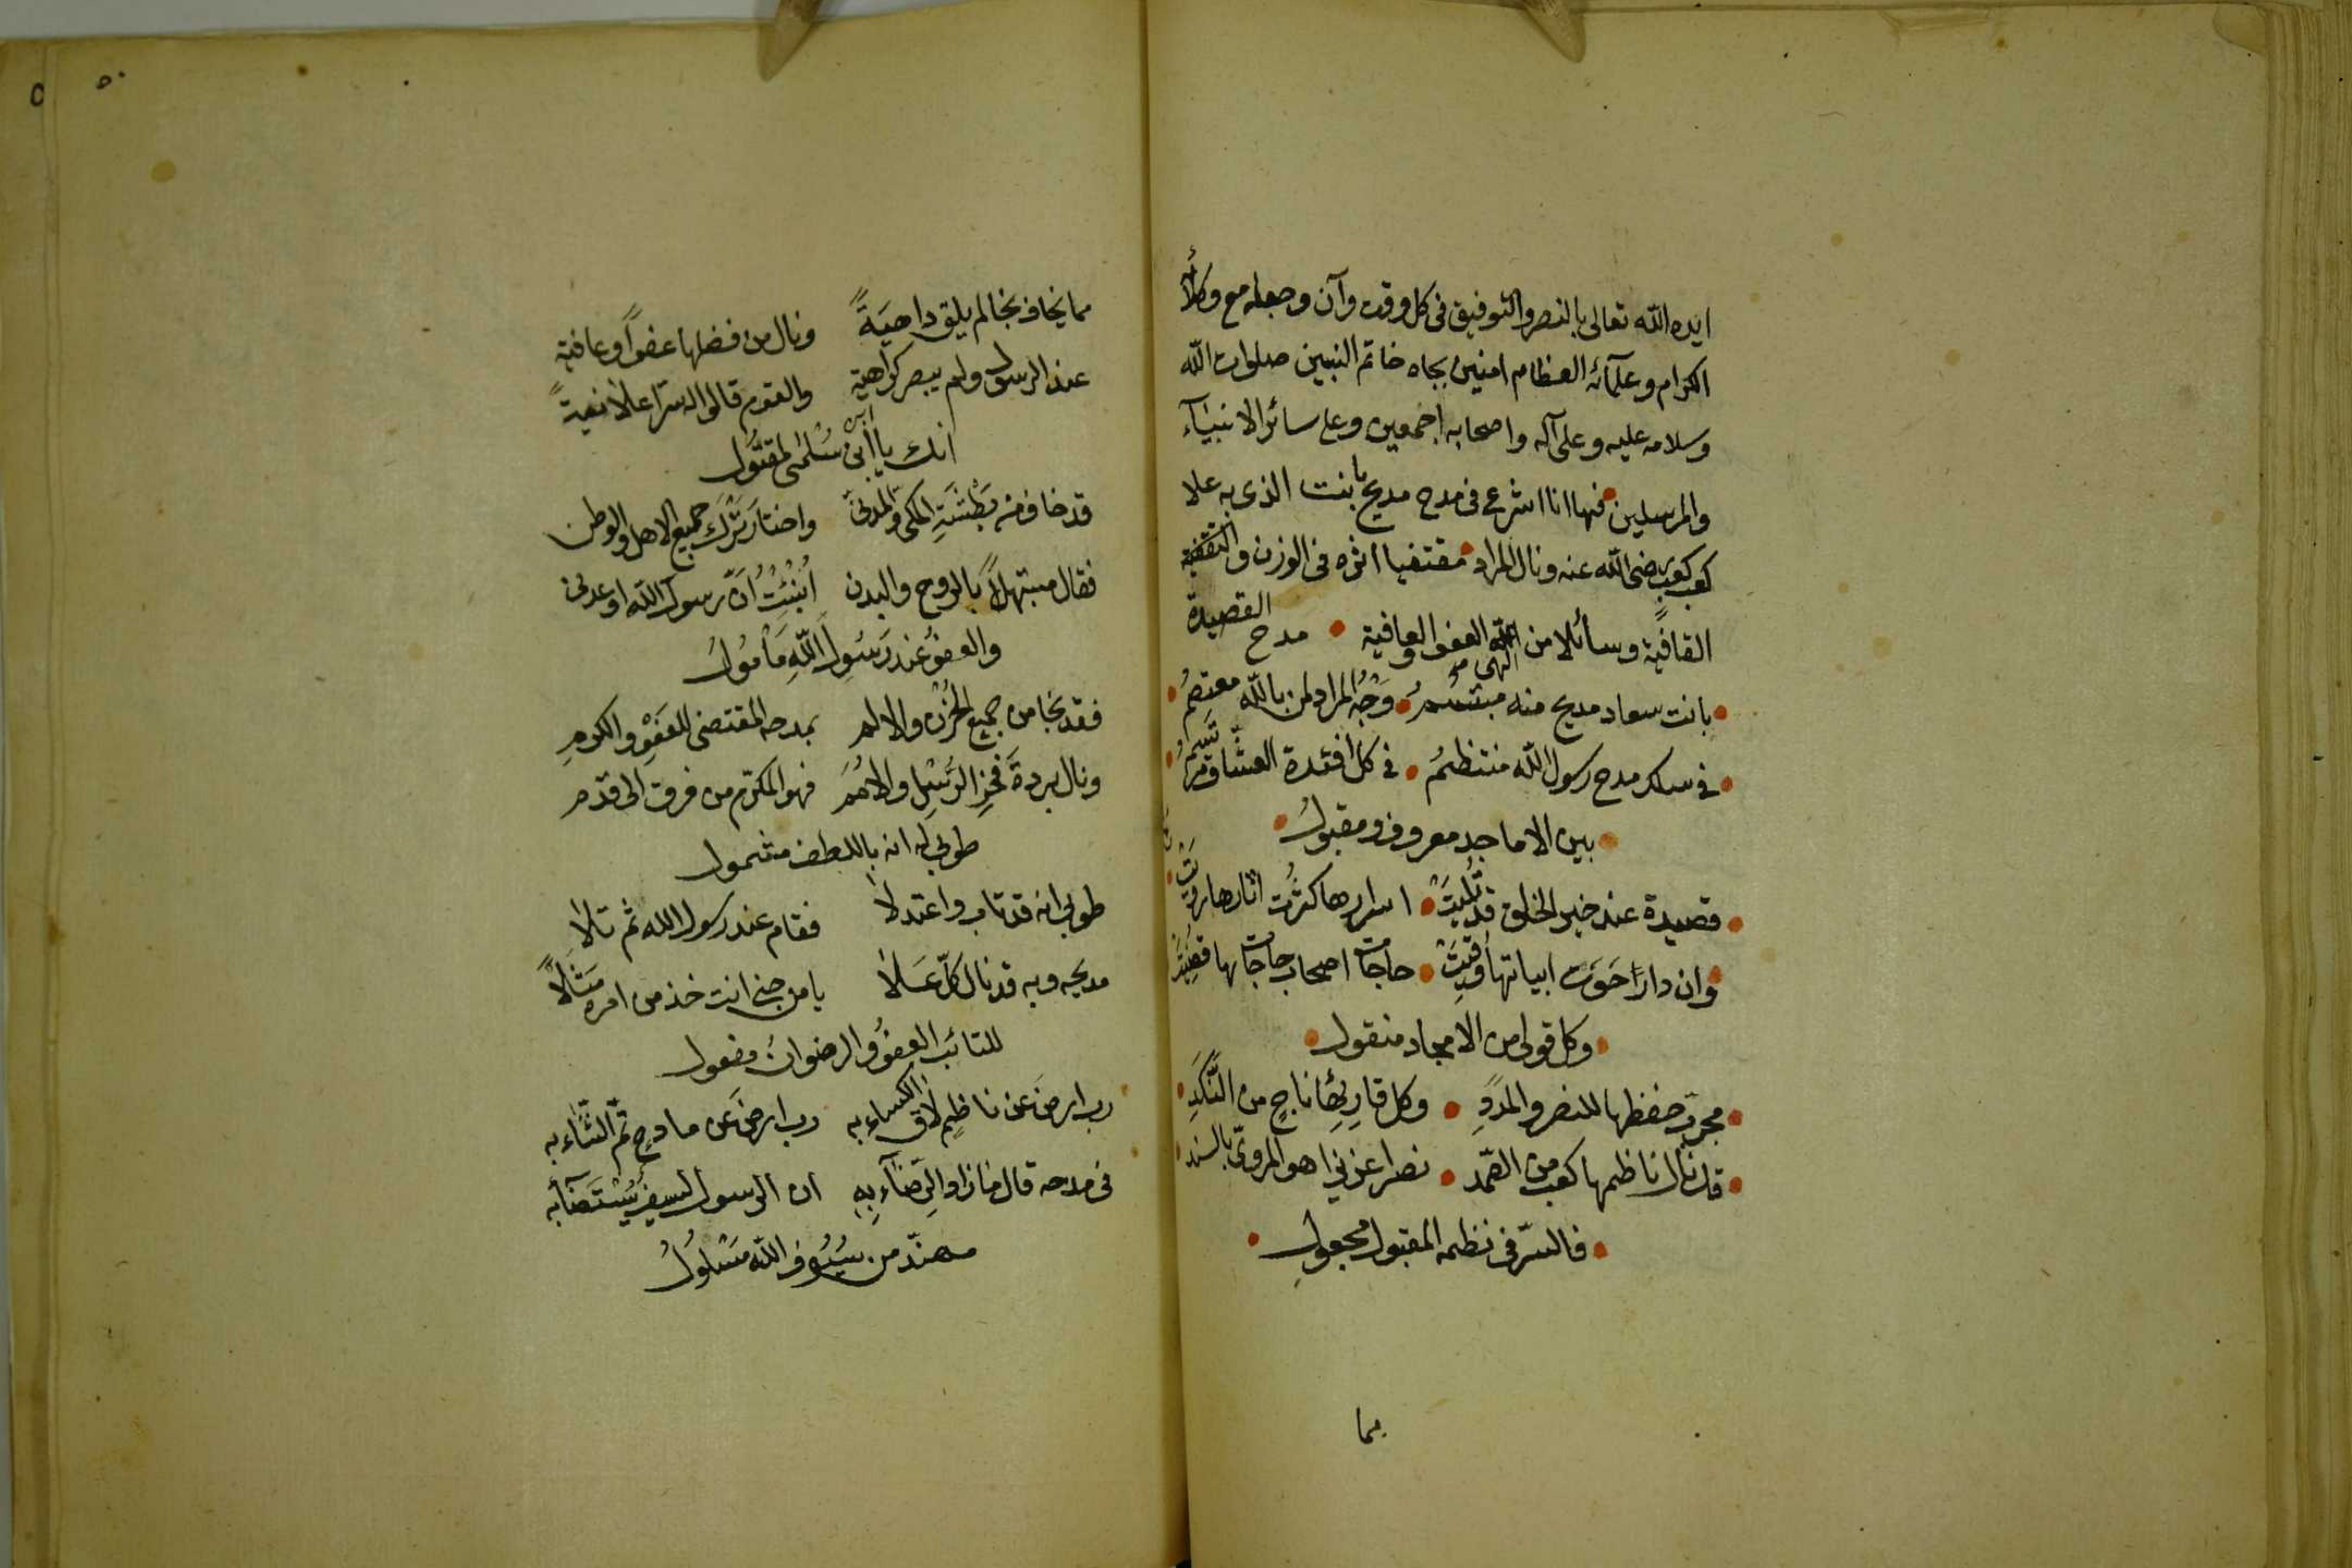 ايده الله تعالى بالنصر والتوفيق فى كل وقت وآن وجعله مع وكلائه
الكرام وعلمائه العظام امنين بجاه خاتم النبيين صلوات الله
وسلامه عليه وعلى آله واصحابه اجمعين وعلى سائر الانبيآء
والمرسلين فها انا اشرع فى مدح مديح بانت الذى به علا
كعب كعب رضى الله عنه ونال المراد مقتفيا اثره فى الوزن والتقفية
القافية وسائلا من الله العفو والعافية مدح القصيدة
بانت سعاد مديح منه مبتسم وجه المراد لمن بالله معتصم
فى سلك مدح رسول الله منتظم فى كل افئدة العشاق مرتسم
بين الاماجد معروف ومقبول
قصيدة عند خير الخلق قد تليت اسرارها كثرت اثارها رويت
وان دارا حوت ابياتها وقيت حاجات اصحاب حاجات بها قضيت
وكل قولى من الامجاد منقول
مجرب حفظها للنصر والمدد وكل قارئها ناج من النكد
قد نال ناظمها كعب من الصمد نصرا عزيزا هو المروى بالسند
فالسر فى نظمه المقبول مجعول
بما
٥٠
مما يخاف نجا لم يلق داهية ونال من فضلها عفوا وعافية
عند الرسول ولم يبصر كراهية والقوم قالوا له سرا علانية
انك يا ابن ابى سلمى لمقتول
قد خاف من بطشة المكى والمدنى واختار ترك جميع الاهل والوطن
فقال مبتهلا بالروح والبدن انبئت ان رسول الله اوعدنى
والعفو عند رسول الله مأمول
فقد نجا من جميع الحزن والالم بمدحه المقتضى للعفو والكرم
ونال بردة فخر الرسل والامم فهو المكرم من فرق الى قدم
طوبى له انه باللطف مشمول
طوبى انه قد تاب واعتدلا فقام عند رسول الله ثم تلا
مديحه وبه قد نال كل علا يا من جنى انت خذ من امره مثلا
للتائب العفو والرضوان مفعول
رب ارض عن ناظم لاق الكساء به رب ارض عن مادح تم الثناء به
فى مدحه قال فازوا والرضآء به ان الرسول لسيف يستضآء به
مهند من سيوف الله مسلول